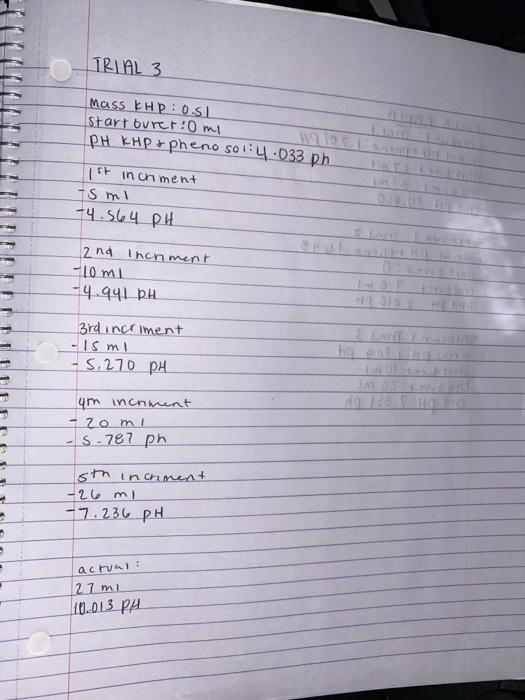 TRIAL 3
Mass KHP: 0.51
Start buret: 0 ml
PH KHP + pheno sol: 4.033 ph
1st incriment
-5 ml
-4.564 pH
2nd Incriment
-10 ml
-4.941 pH
3rd incriment
-15 ml
-5.270 pH
4th incriment
-20 ml
-5.787 ph
5th incriment
-26 ml
-7.236 pH
actual:
27 ml
10.013 PH